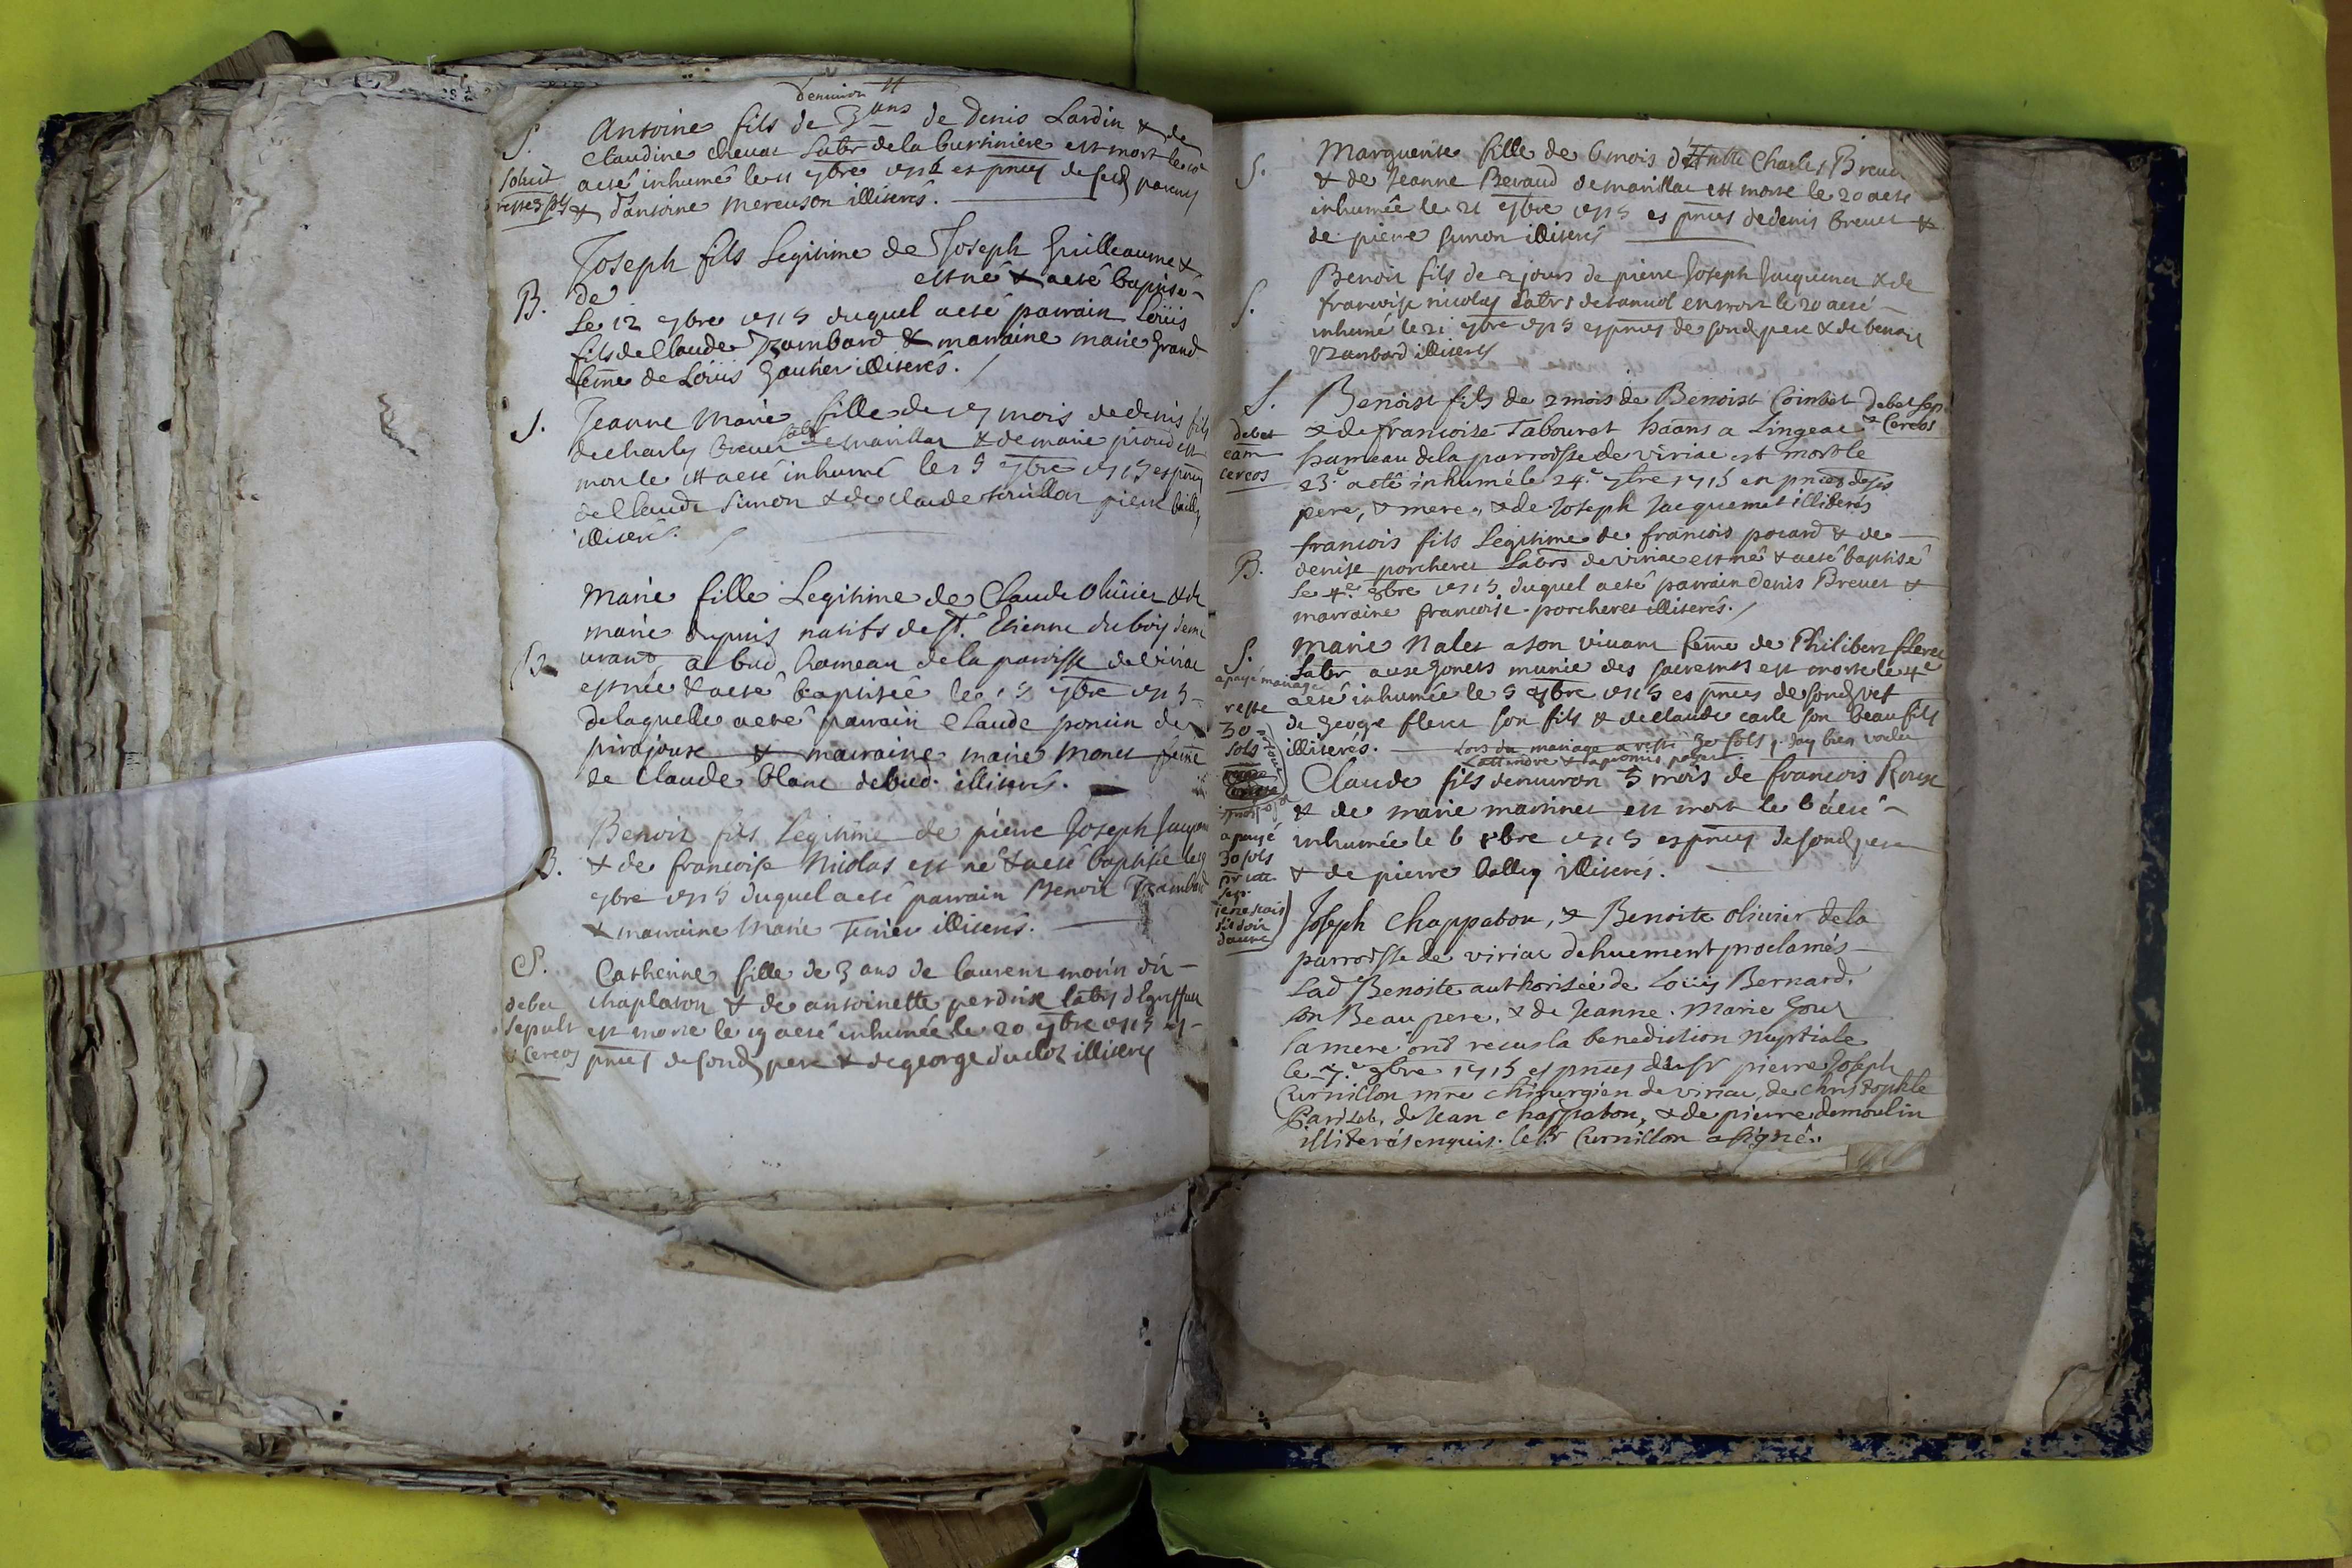 d'environ
S. Antoine fils de 3 ans de Denis Lardin & de
Claudine chevat Labr de la bursiniere est mort le 10
Solvit acté inhumé le 11 7bre 1715 es pnces de sesd parens
reste & d'antoine mercuson illiterés.
Joseph fils Legitime de Joseph Guilleaume &
de est né & aeté baptisé
B. Le 12 7bre 1715 duquel aeté parrain Loüis
fils de Claude Rambard & marraine marie Grand
feme de Loüis Gautier illiterés.
S. Jeanne Marie fille de 17 mois de denis fils
de charly breuet labr de marillat & de marie pioud est
morte & aeté inhumé le 15 7bre 1715 es pnces
de Claude Simon & de Claude pierre bailly
illiterés.
Marie fille Legitime de Claude Olivier & de
marie dupuis natifs de St. Etienne du bois deme
B. urant a bud hameau de la parroisse de viriat
est née & aeté baptisée le 15 7bre 1715
de laquelle aeté parrain Claude poncin de
pirajoux & marraine marie Monet feme
de Claude blanc de bud. illiterés.
Benoit fils Legitime de pierre Joseph
B. & de francoise Nicolas est né & aeté baptisé le 19
7bre 1715 duquel aeté parrain Benoit Rambard
& marraine Marie Tenier illiterés.
S. Catherine fille de 3 ans de laurent morin dit
debet chaplaton & de antoinette perdrix labrs
sepult est morte le 19 aeté inhumée le 20 7bre 1715 es
& cereos pnces de sond pere & de george duclos illiterés
S. Marguerite fille de 6 mois de Charles Breuet
& de Jeanne Beraud de marillat est morte le 20 aeté
inhumée le 21 7bre 1715 es pnces de denis breuet &
de pierre Simon illiterés
Benoit fils de 2 jours de pierre Joseph Jacquemet & de
S. francoise nicolas Labrs de est mort le 20 aeté
inhumé le 21 7bre 1715 es pnces de sond pere & de benoit
Rambard illiterés
S. Benoist fils de 2 mois de Benoist Cointet debet sep.
debet & de francoise Tabouret hãans a Lingeat & Cereos
eam hameau de la parroisse de viriat est mort le
cereos 23.e aeté inhumé le 24.e 7bre 1715 en pnces de ses
pere, & mere, & de Joseph Jacquemet illiterés
francois fils Legitime de francois pocard & de
B. denise porcheret Labrs de viriat est né & aeté baptisé
le 4e 8bre 1715 duquel aeté parrain denis Breuet &
marraine francoise porcheret illiterés.
S. Marie Nalet a son vivant feme de Philibert fleret
Labr munie des sacremts est morte le 4e
a payé mariage
reste aeté inhumée le 5 8bre 1715 es pnces de sond
30 de george fleret son fils & de Claude carle son beau fils
sols illiterés. Lors du mariage a resté 30 sols j'ay bien voulu
L'attendre & a promis payer
Claude fils d'environ 5 mois de francois Roux
& de marie martinet est mort le 6 aeté
a payé inhumée le 6 8bre 1715 es pnces de sond pere
30 sols & de pierre bailly illiterés.
je ne scais
s'il doit
d'autre
Joseph Chappaton, & Benoite olivier de la
parroisse de viriat dehuement proclamés
Lad Benoite authorisée de Loüis Bernard,
son Beaupere, & de Jeanne Marie Gour
sa mere ont receus la benediction nuptiale
le 7.e 8bre 1715 es pnces du sr pierre Joseph
Curnillon mre chirurgien de viriat, de Christophle
, de Jean Chappaton, & de pierre demoulin
illiterés enquis. led sr Curnillon a signé.